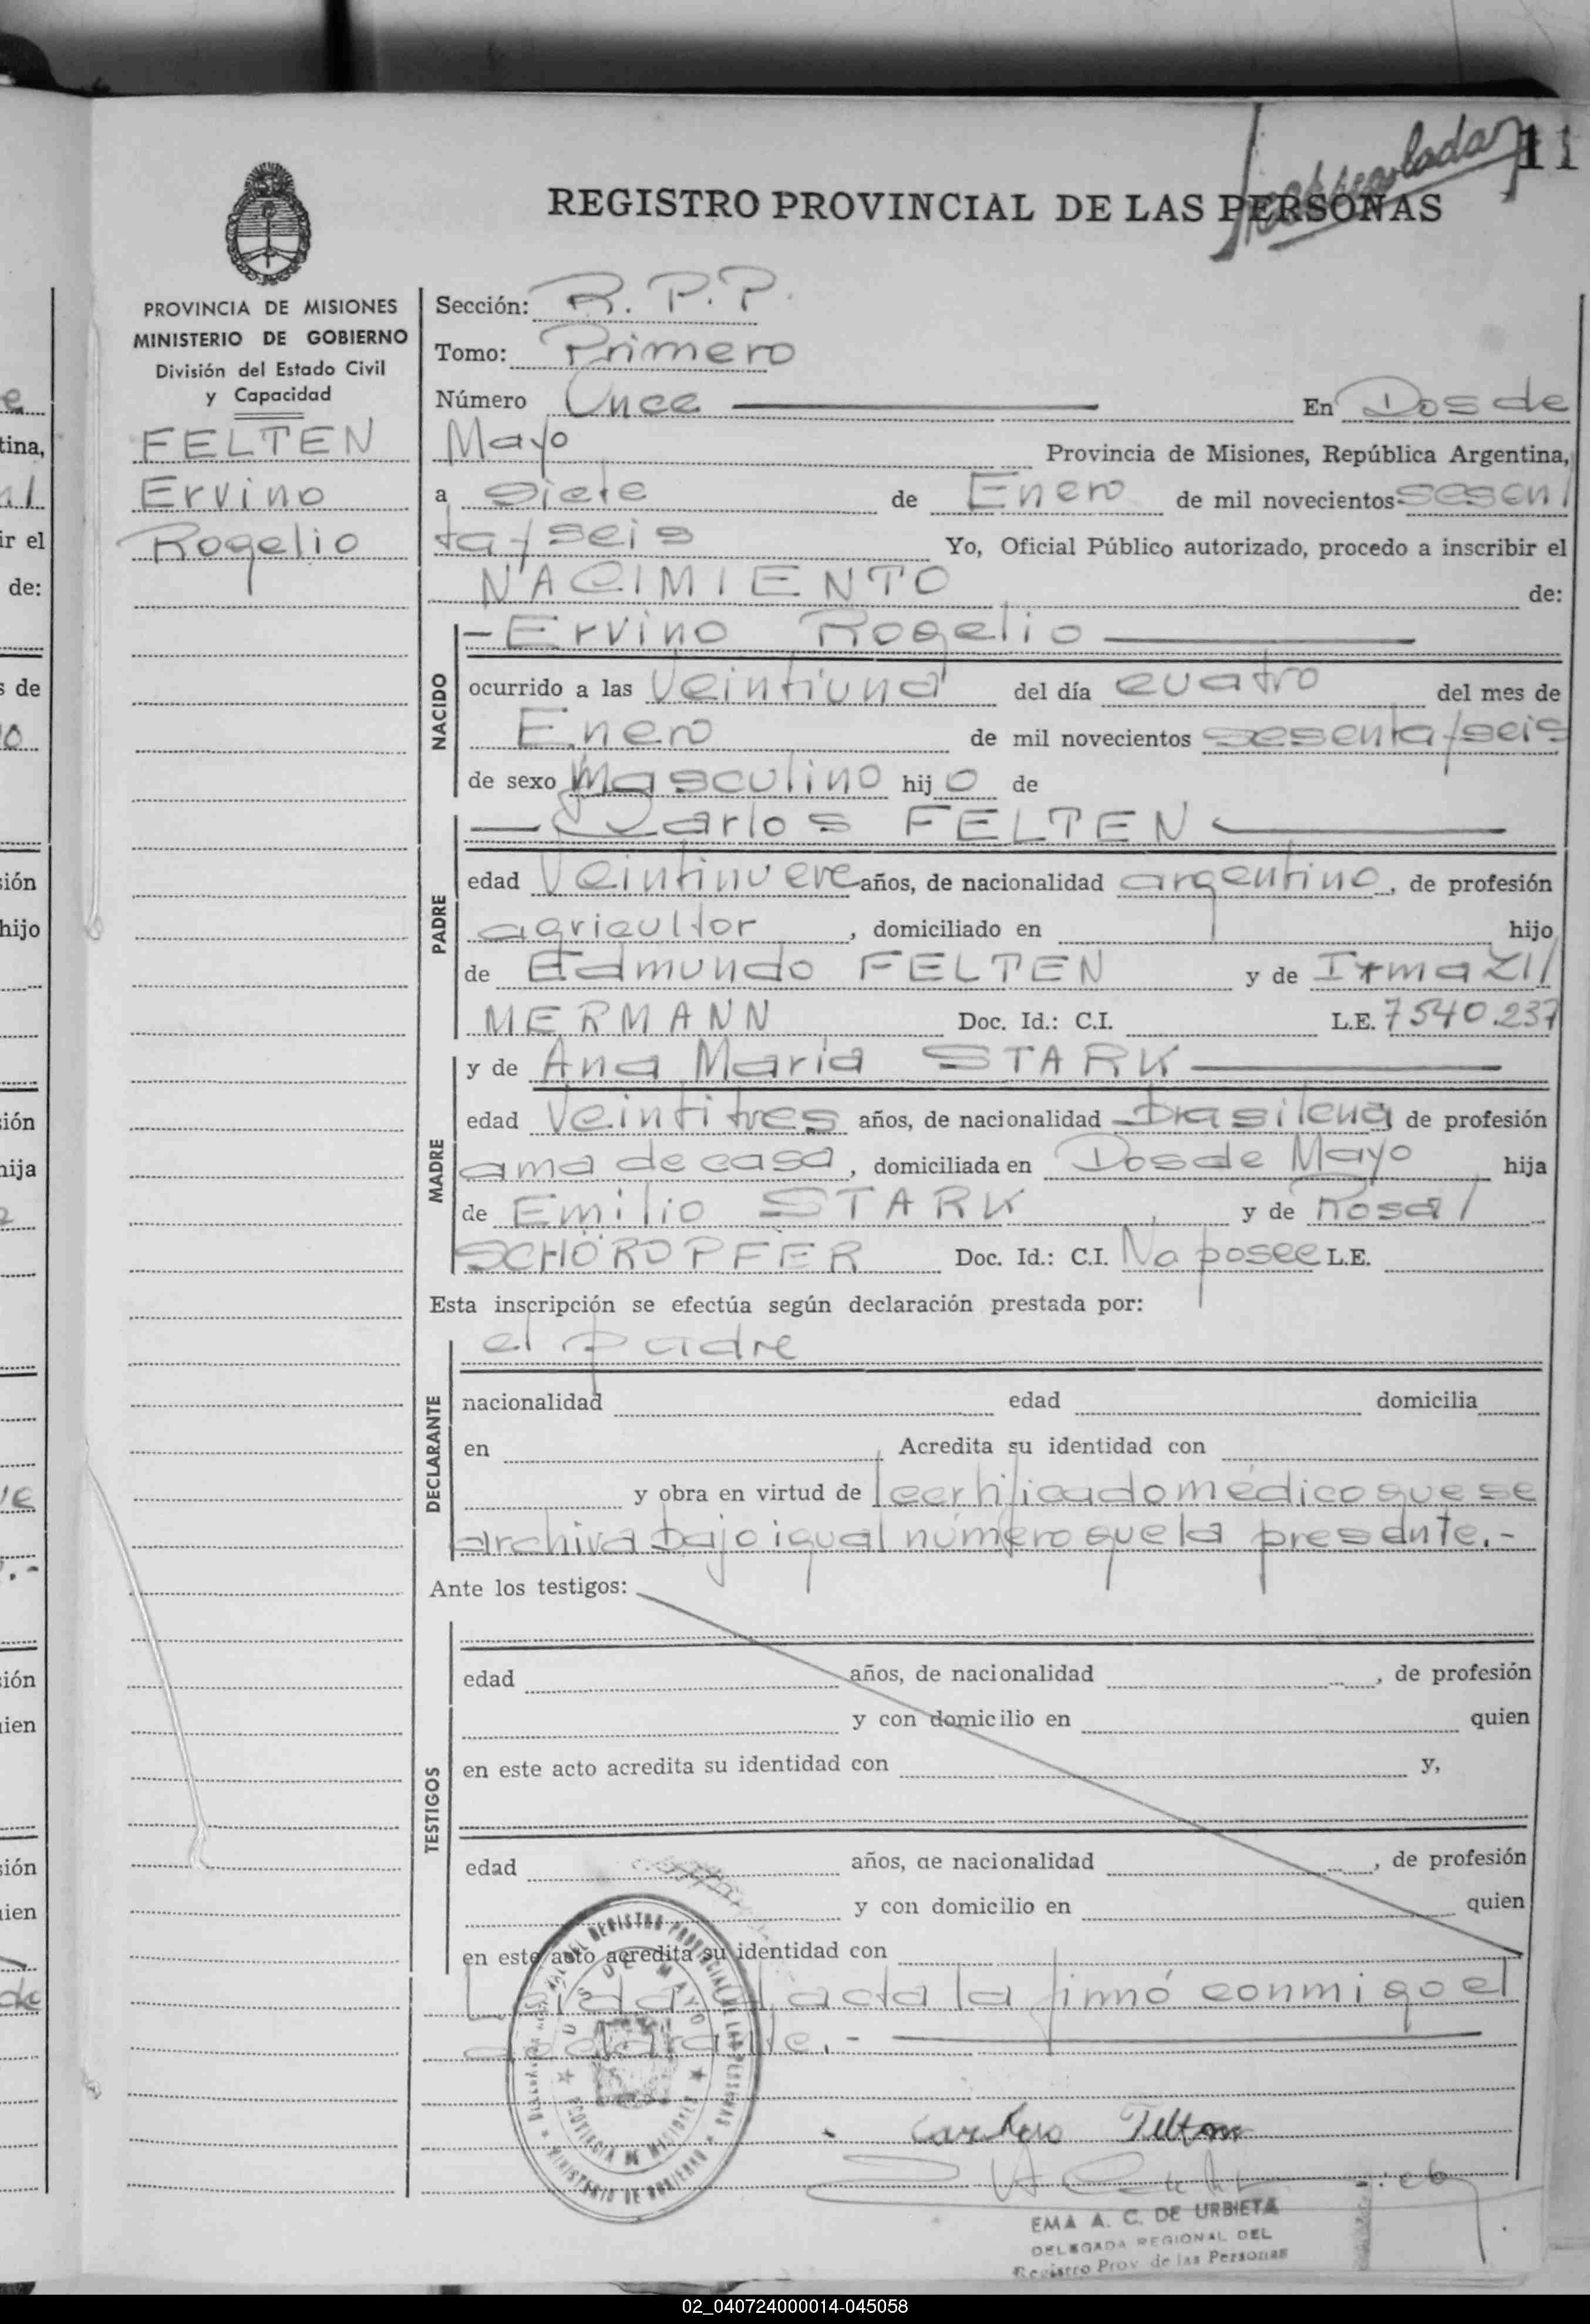 11
REGISTRO PROVINCIAL DE LAS PERSONAS
PROVINCIA DE MISIONES
MINISTERIO DE GOBIERNO
División del Estado Civil
y Capacidad
FELTEN
Ervino
Rogelio
Sección: R. P. P.
Tomo: Primero
Número Once En Dos de
Mayo Provincia de Misiones, República Argentina,
a siete de Enero de mil novecientos sesen/
ta/seis Yo, Oficial Público autorizado, procedo a inscribir el
NACIMIENTO de:
NACIDO
- Ervino Rogelio
ocurrido a las Veintiuna del día cuatro del mes de
Enero de mil novecientos sesenta/seis
de sexo Masculino hijo de
PADRE
Carlos FELTEN
edad Veintinueve años, de nacionalidad argentino, de profesión
agricultor, domiciliado en hijo
de Edmundo FELTEN y de Irma ZI/
MERMANN Doc. Id.: C.I. L.E. 7540.237
MADRE
y de Ana Maria STARK
edad Veintitres años, de nacionalidad brasilena de profesión
ama de casa, domiciliada en Dos de Mayo hija
de Emilio STARK y de Rosa/
SCHÖROPFER Doc. Id.: C.I. No posee L.E.
Esta inscripción se efectúa según declaración prestada por:
DECLARANTE
el padre
nacionalidad edad domicilia
en Acredita su identidad con
y obra en virtud de certificado médico que se
archiva bajo igual número que la presente.-
Ante los testigos:
TESTIGOS
edad años, de nacionalidad , de profesión
y con domicilio en quien
en este acto acredita su identidad con y,
edad años, de nacionalidad , de profesión
y con domicilio en quien
en este acto acredita su identidad con
Leida el acta la firmó conmigo el
declarante.-
DEL REGISTRO PROVINCIAL DE LAS PERSONAS
MINISTERIO DE GOBIERNO
DOS DE MAYO
PROVINCIA DE MISIONES
Carlos Felten
EMA A. C. DE URBIETA
DELEGADA REGIONAL DEL
Registro Prov. de las Personas
02_040724000014-045058